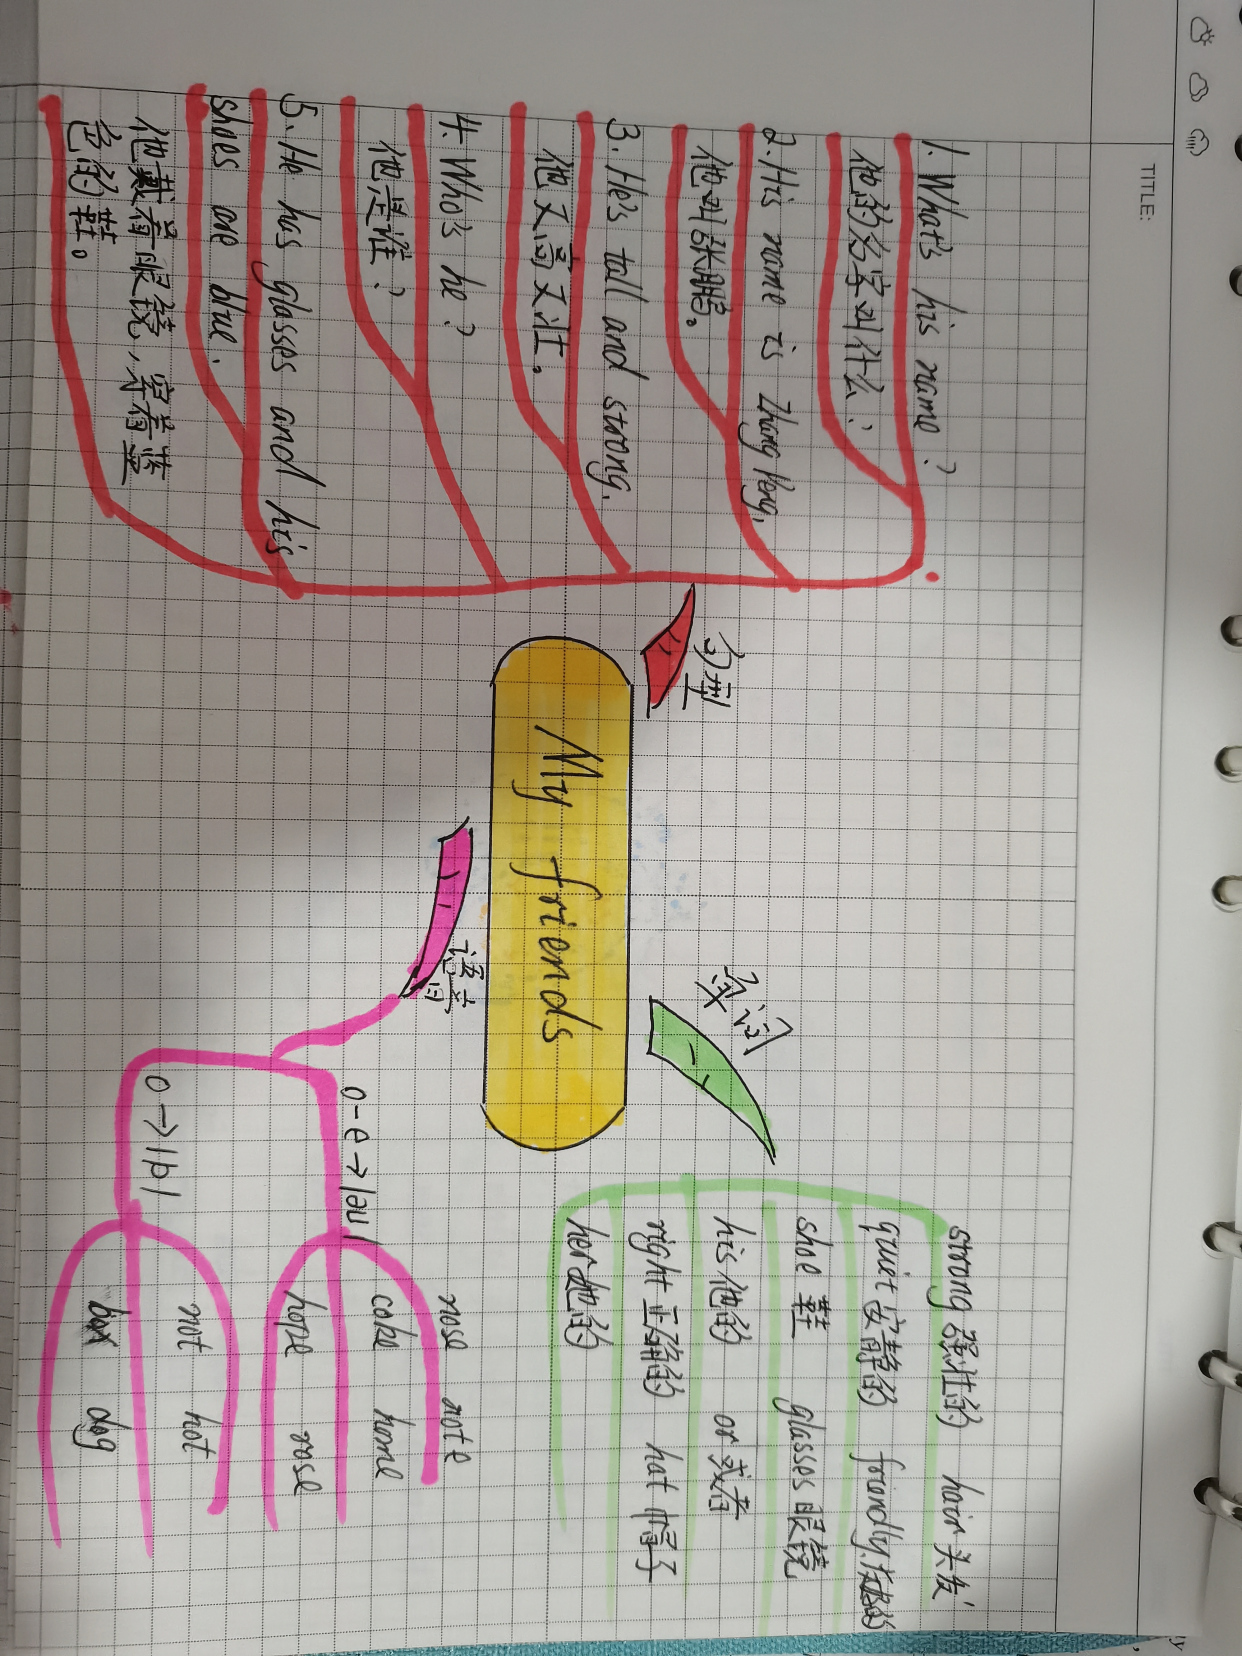 TITLE:
My friends
句型
1. What's his name?
他的名字叫什么?
2. His name is Zhang Peng.
他叫张鹏。
3. He's tall and strong.
他又高又壮。
4. Who's he?
他是谁?
5. He has glasses and his
shoes are blue.
他戴着眼镜,穿着蓝
色的鞋。
单词
strong 强壮的 hair 头发
quiet 安静的 friendly
shoe 鞋 glasses 眼镜
his 他的 or 或者
right 正确的 hat 帽子
her 她的
语音
o-e→|əʊ|
nose note
coke home
hope rose
o→|ɒ|
not hot
box dog